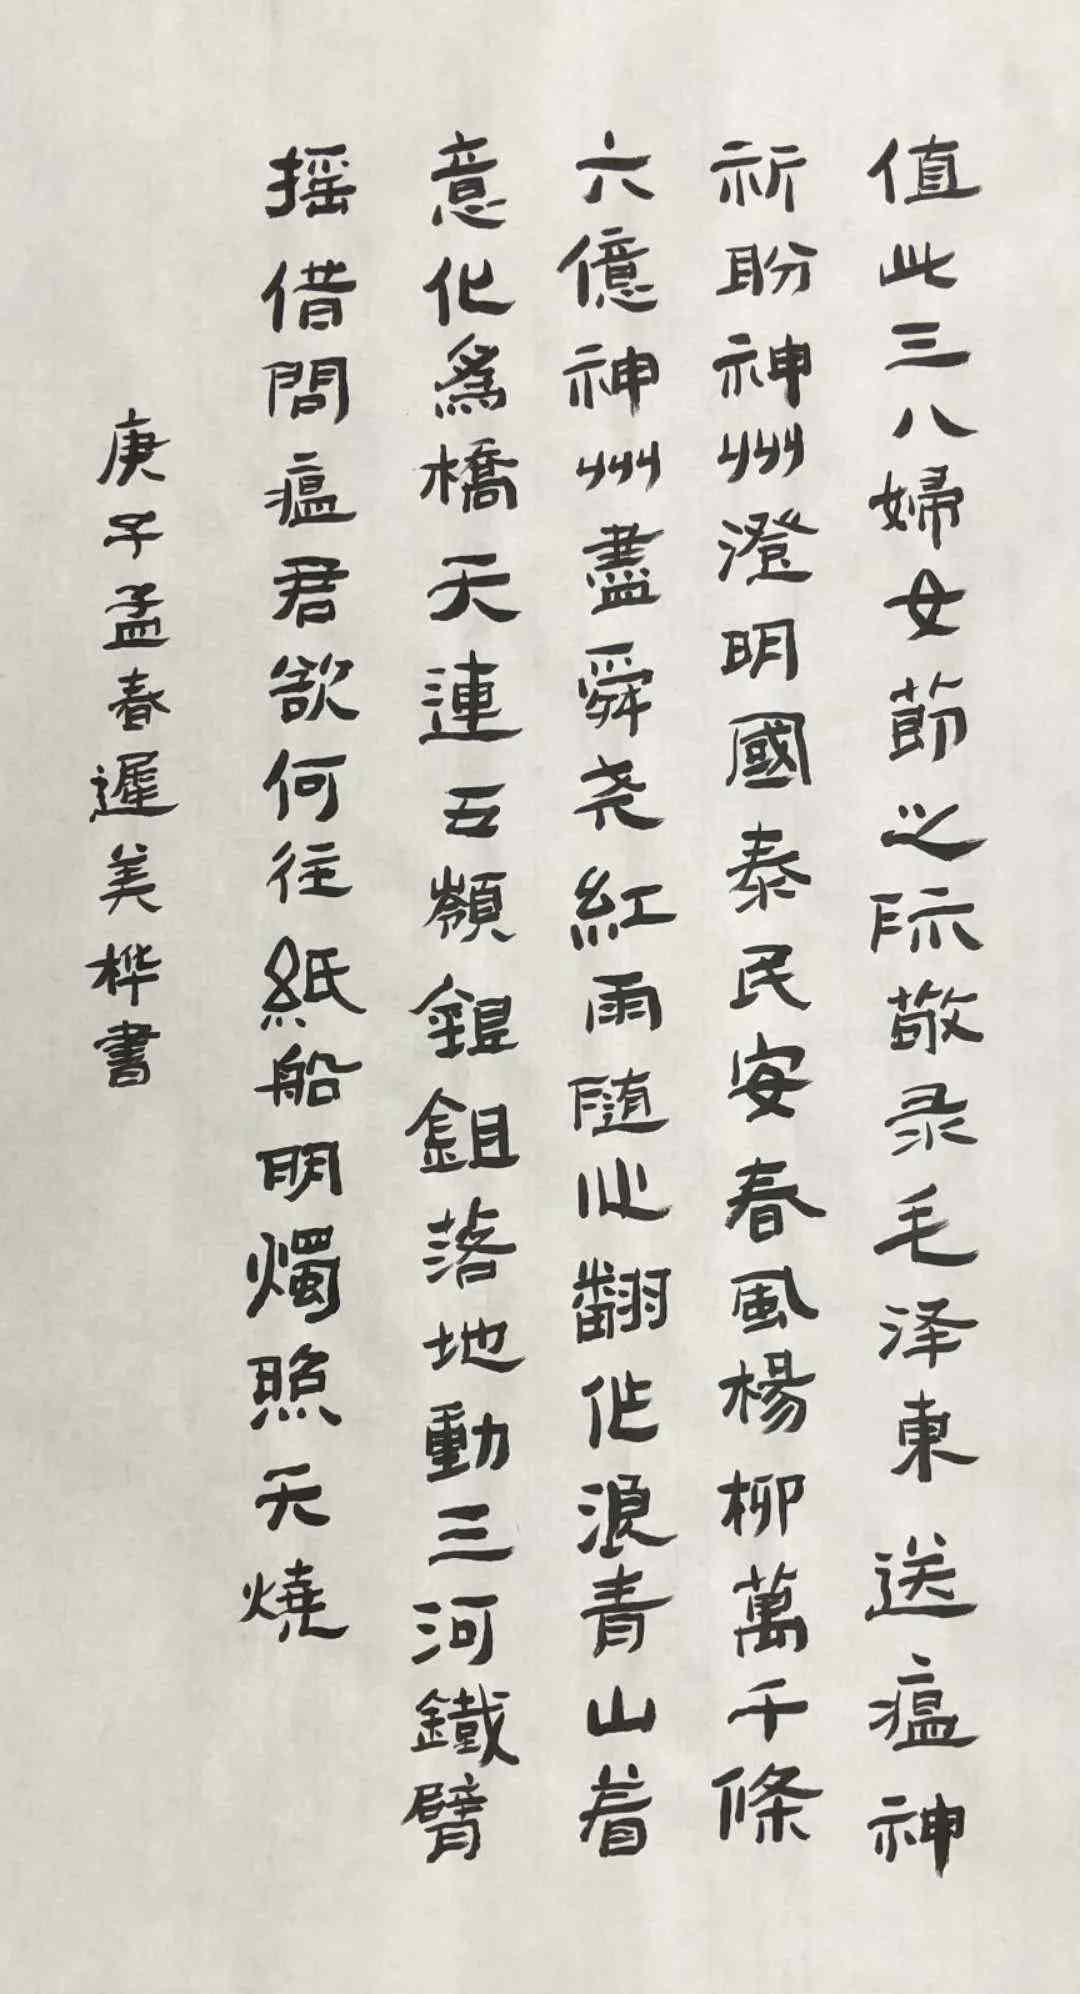 值此三八婦女節之际敬录毛泽東送瘟神
祈盼神州澄明國泰民安春風楊柳萬千條
六億神州盡舜尧紅雨隨心翻作浪青山着
意化為橋天連五嶺銀鋤落地動三河鐵臂
摇借問瘟君欲何往紙船明燭照天燒
庚子孟春遲美桦書